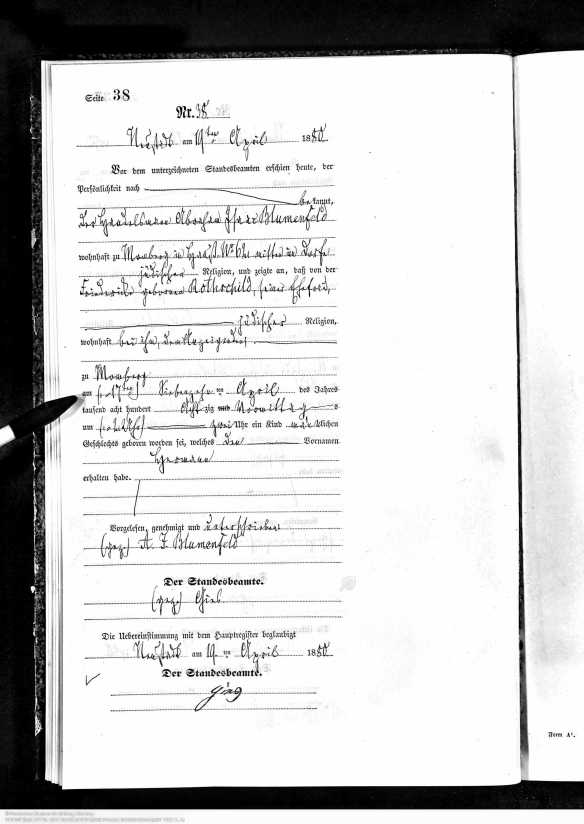 Seite 38
Nr. 38
Neustadt am 19ten April 1880
Vor dem unterzeichneten Standesbeamten erschien heute, der
Persönlichkeit nach
bekannt,
der Handelsmann Abraham Isaac Blumenfeld
wohnhaft zu Momberg in Haus No 62 mitten im Dorfe
jüdischer Religion, und zeigte an, daß von der
Friederike geborenen Rothschild, seiner Ehefrau,
jüdischer Religion,
wohnhaft bei ihm, dem Anzeigenden
zu Momberg
am Siebenzehnten April des Jahres
tausend acht hundert Achtzig Vormittags
um zwei Uhr ein Kind männlichen
Geschlechts geboren worden sei, welches den Vornamen
Hermann
erhalten habe.
Vorgelesen, genehmigt und unterschrieben
(gez.) A. I. Blumenfeld
Der Standesbeamte.
(gez.) Gies
Die Uebereinstimmung mit dem Hauptregister beglaubigt
Neustadt am 19ten April 1880
Der Standesbeamte.
Gies
Form A1.